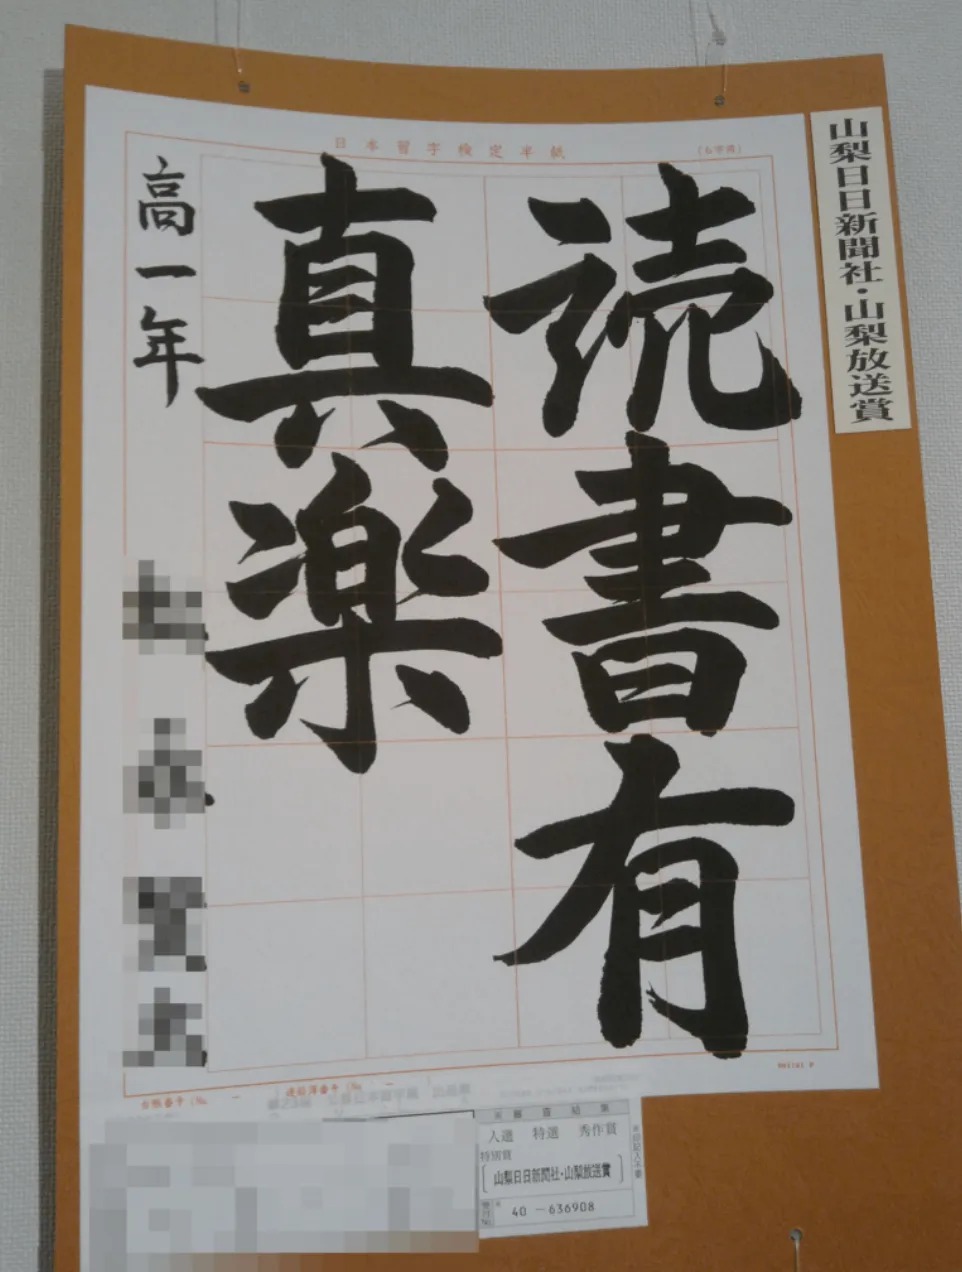 日本習字検定半紙
(七字用)
山梨日日新聞社・山梨放送賞
読書有
真楽
高一年
入選 特選 秀作賞
特別賞
山梨日日新聞社・山梨放送賞
40 －636908